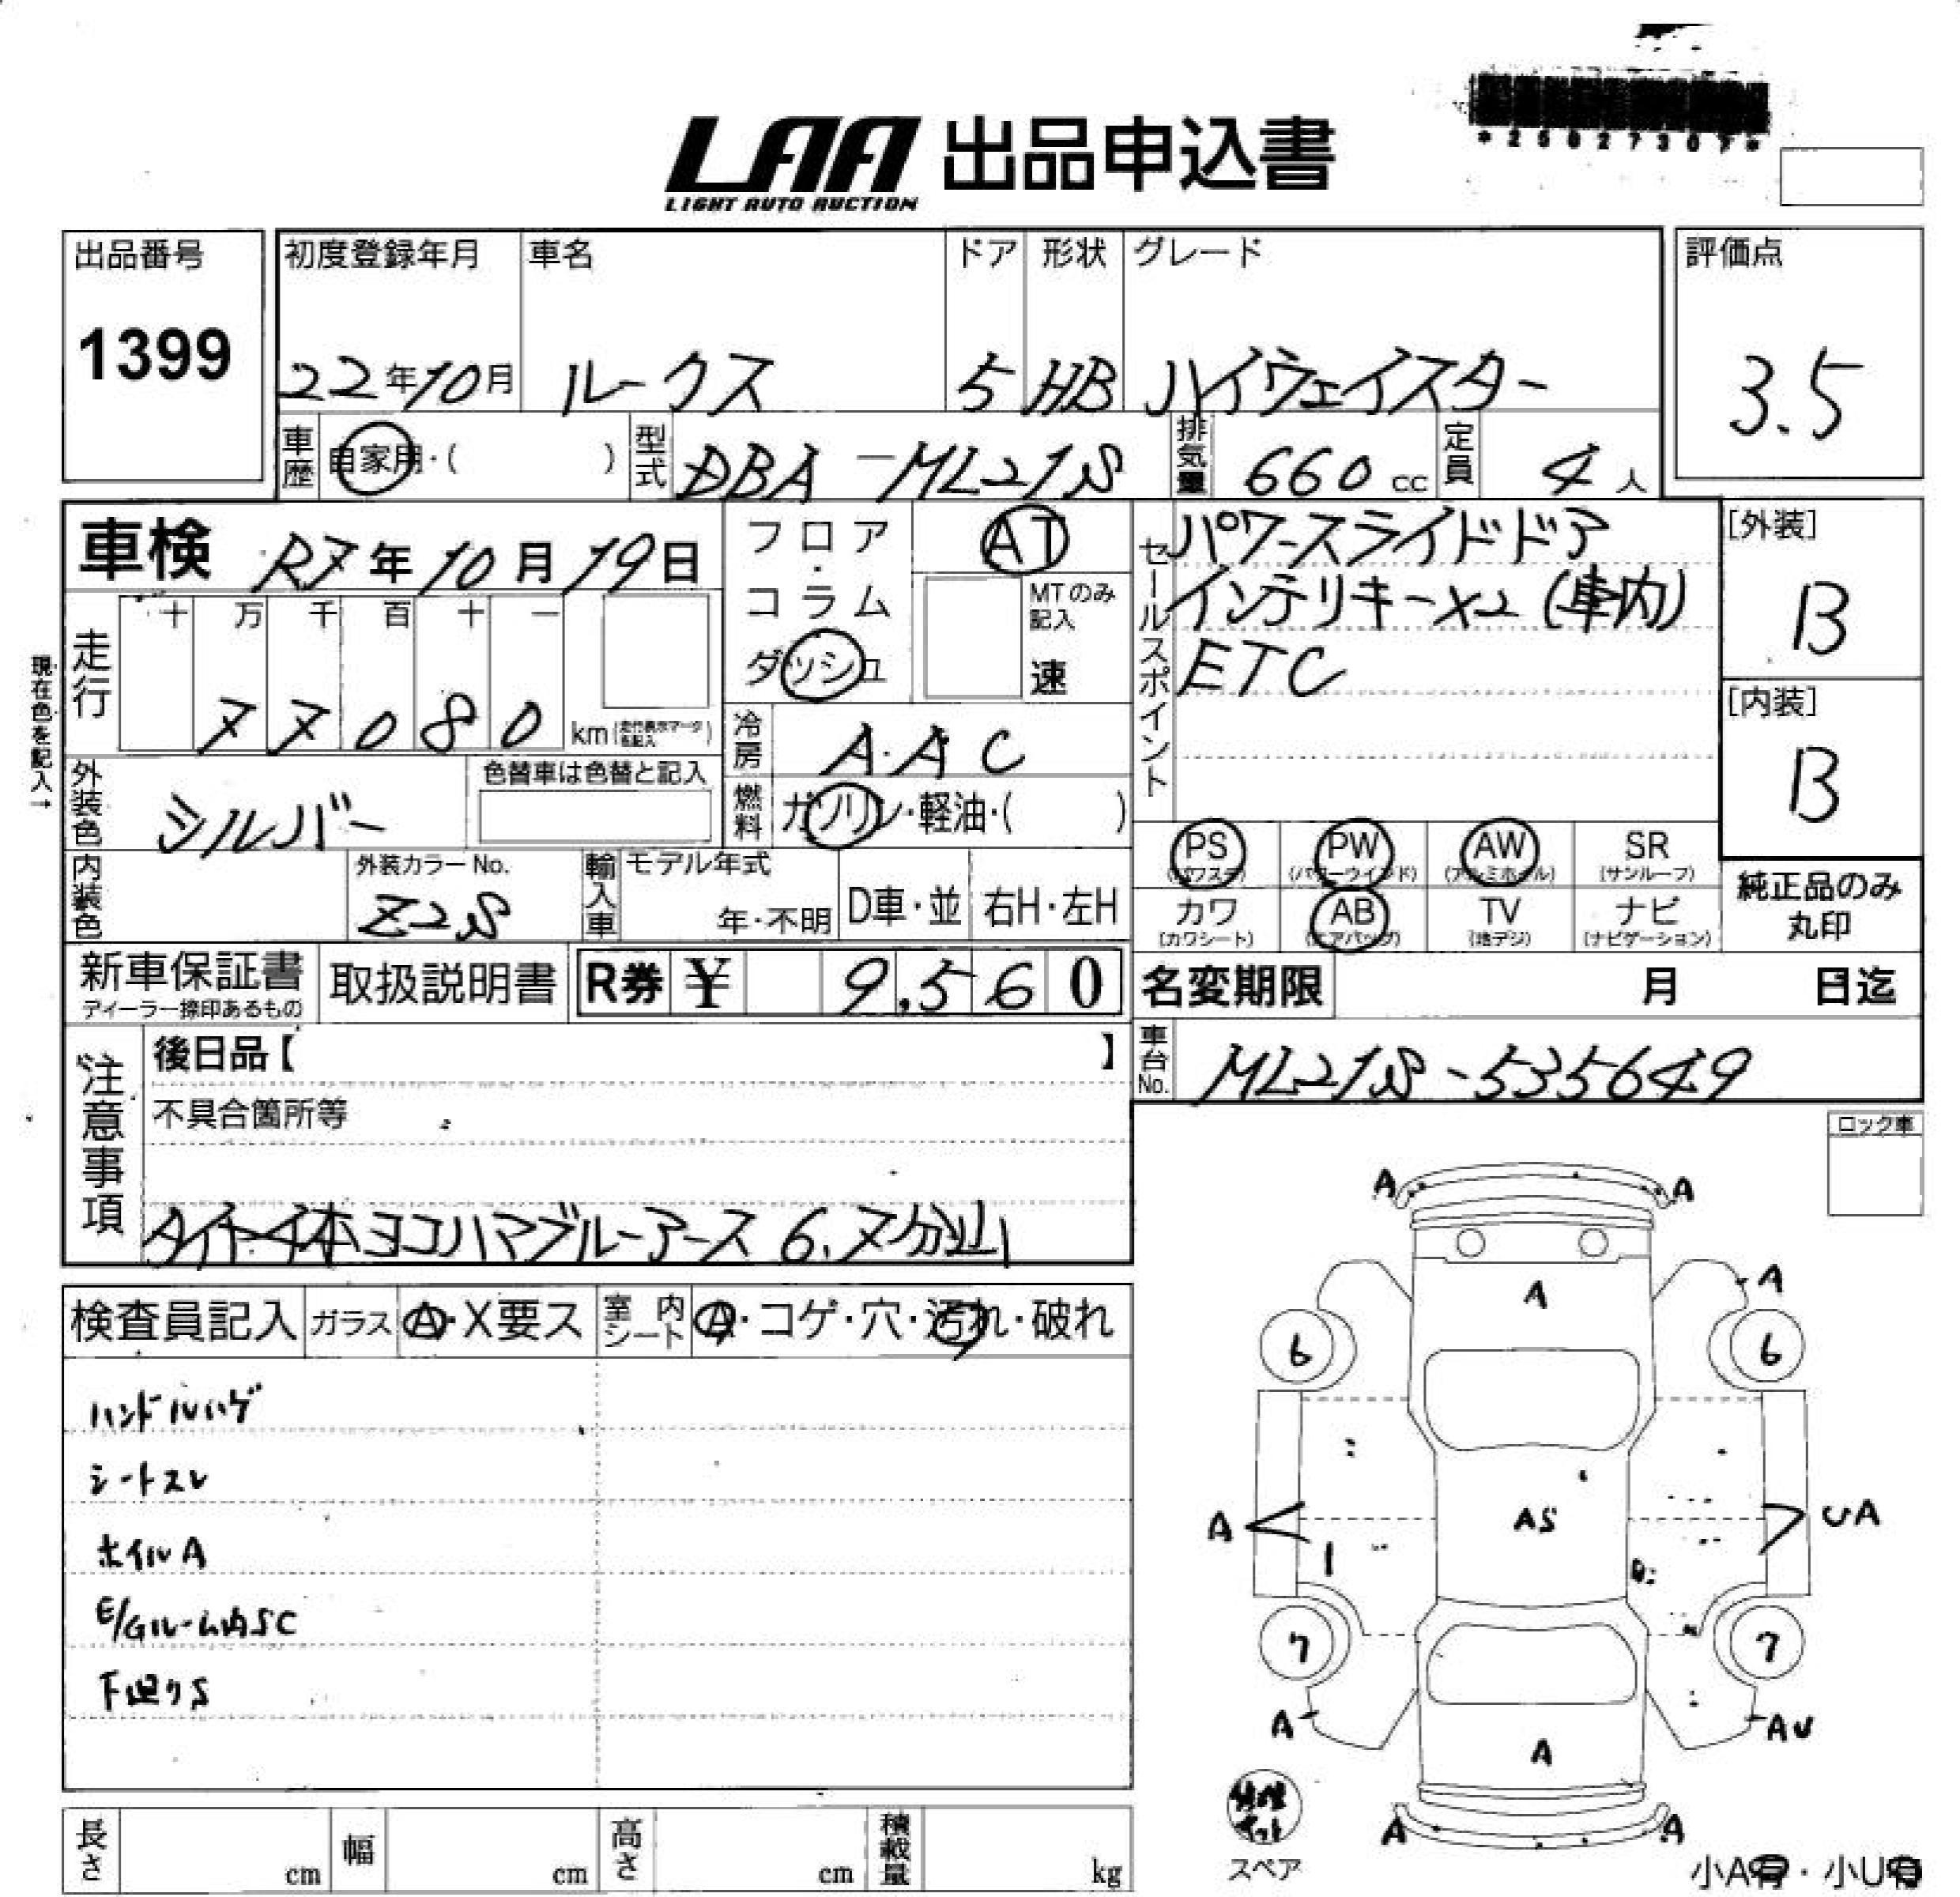 LAA 出品申込書
LIGHT AUTO AUCTION
出品番号
1399
初度登録年月 車名 ドア 形状 グレード
22年10月 ルークス 5 HB ハイウェイスター
評価点
3.5
車歴 自家用・( ) 型式 DBA-ML21S 排気量 660cc 定員 4人
車検 R7年10月19日
フロア・コラム ダッシュ
AT
MTのみ記入
速
セールスポイント
パワースライドドア
インテリキーX2(車内)
ETC
[外装]
B
[内装]
B
現在色を記入→
走行 十 万 千 百 十 一
77080 km
冷房 A.AC
外装色 シルバー 色替車は色替と記入
燃料 ガソリン・軽油・( )
内装色 外装カラーNo. Z2S
輸入車 モデル年式 年・不明 D車・並 右H・左H
PS (パワステ) PW (パワーウインド) AW (アルミホイル) SR (サンルーフ)
カワ (カワシート) AB (エアバッグ) TV (地デジ) ナビ (ナビゲーション)
純正品のみ
丸印
新車保証書
ディーラー捺印あるもの
取扱説明書
R券 ¥ 9,560
名変期限 月 日迄
車台No. ML21S-535649
注意事項
後日品【 】
不具合箇所等
タイヤ4本ヨコハマブルーアース 6.7分山
ロック車
検査員記入 ガラス A・X要ス 室内シート A・コゲ・穴・汚れ・破れ
ハンドルハゲ
シートスレ
ホイルA
E/Gルーム内SC
下廻りS
A A
A A
6 6
A AS UA
7 7
A A AU
A A
スペア
小A有・小U有
長さ cm 幅 cm 高さ cm 積載量 kg